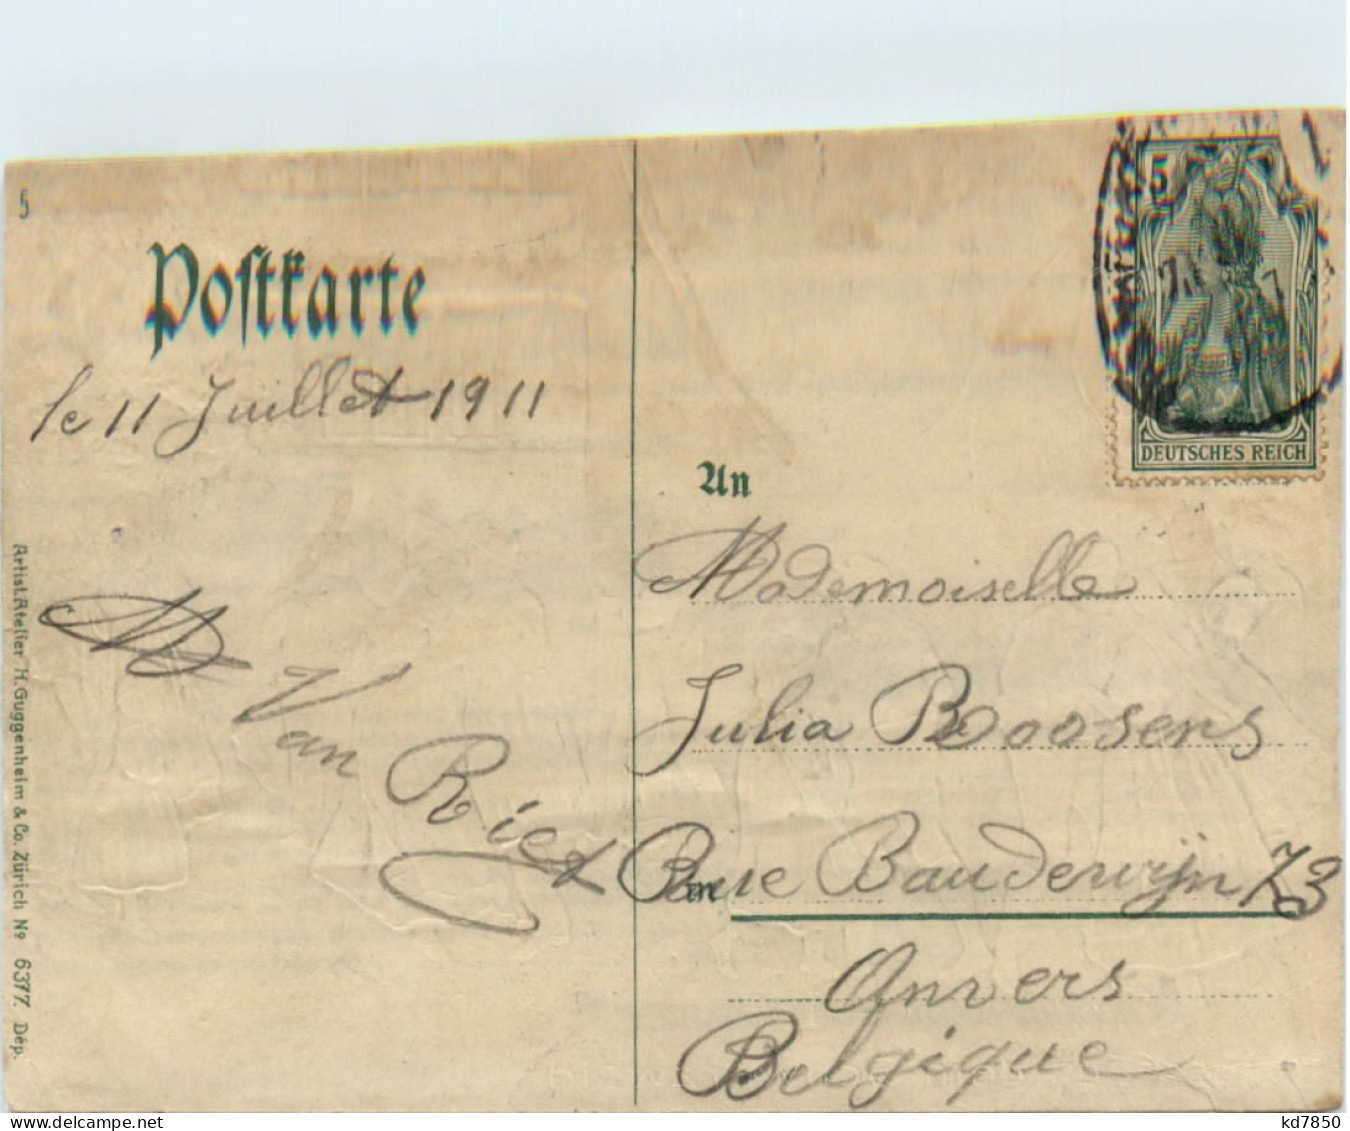 5
Postkarte
le 11 Juillet 1911
M Van Riet
Artist. Atelier H. Guggenheim & Co. Zürich Nº 6377. Dép.
5
DEUTSCHES REICH
An
Mademoiselle
Julia Boosens
in
Rue Bauderijn 73
Anvers
Belgique
kd7850